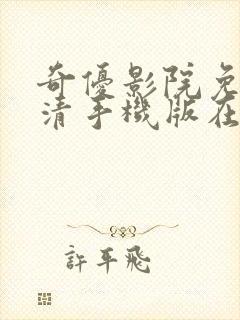 奇優影院免
清手機版在
許平飛